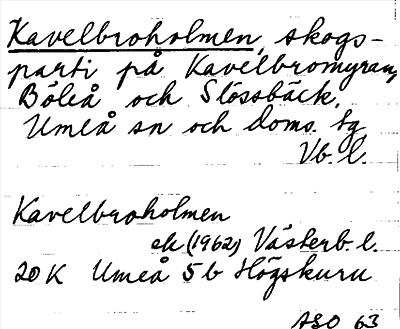 Kavelbroholmen, skogs-
parti på Kavelbromyran,
Böleå och Stössbäck,
Umeå sn och doms. sg
Vb. l.
Kavelbroholmen
ek (1962) Västerb. l.
20K Umeå 5b Högskuru
ASO 63